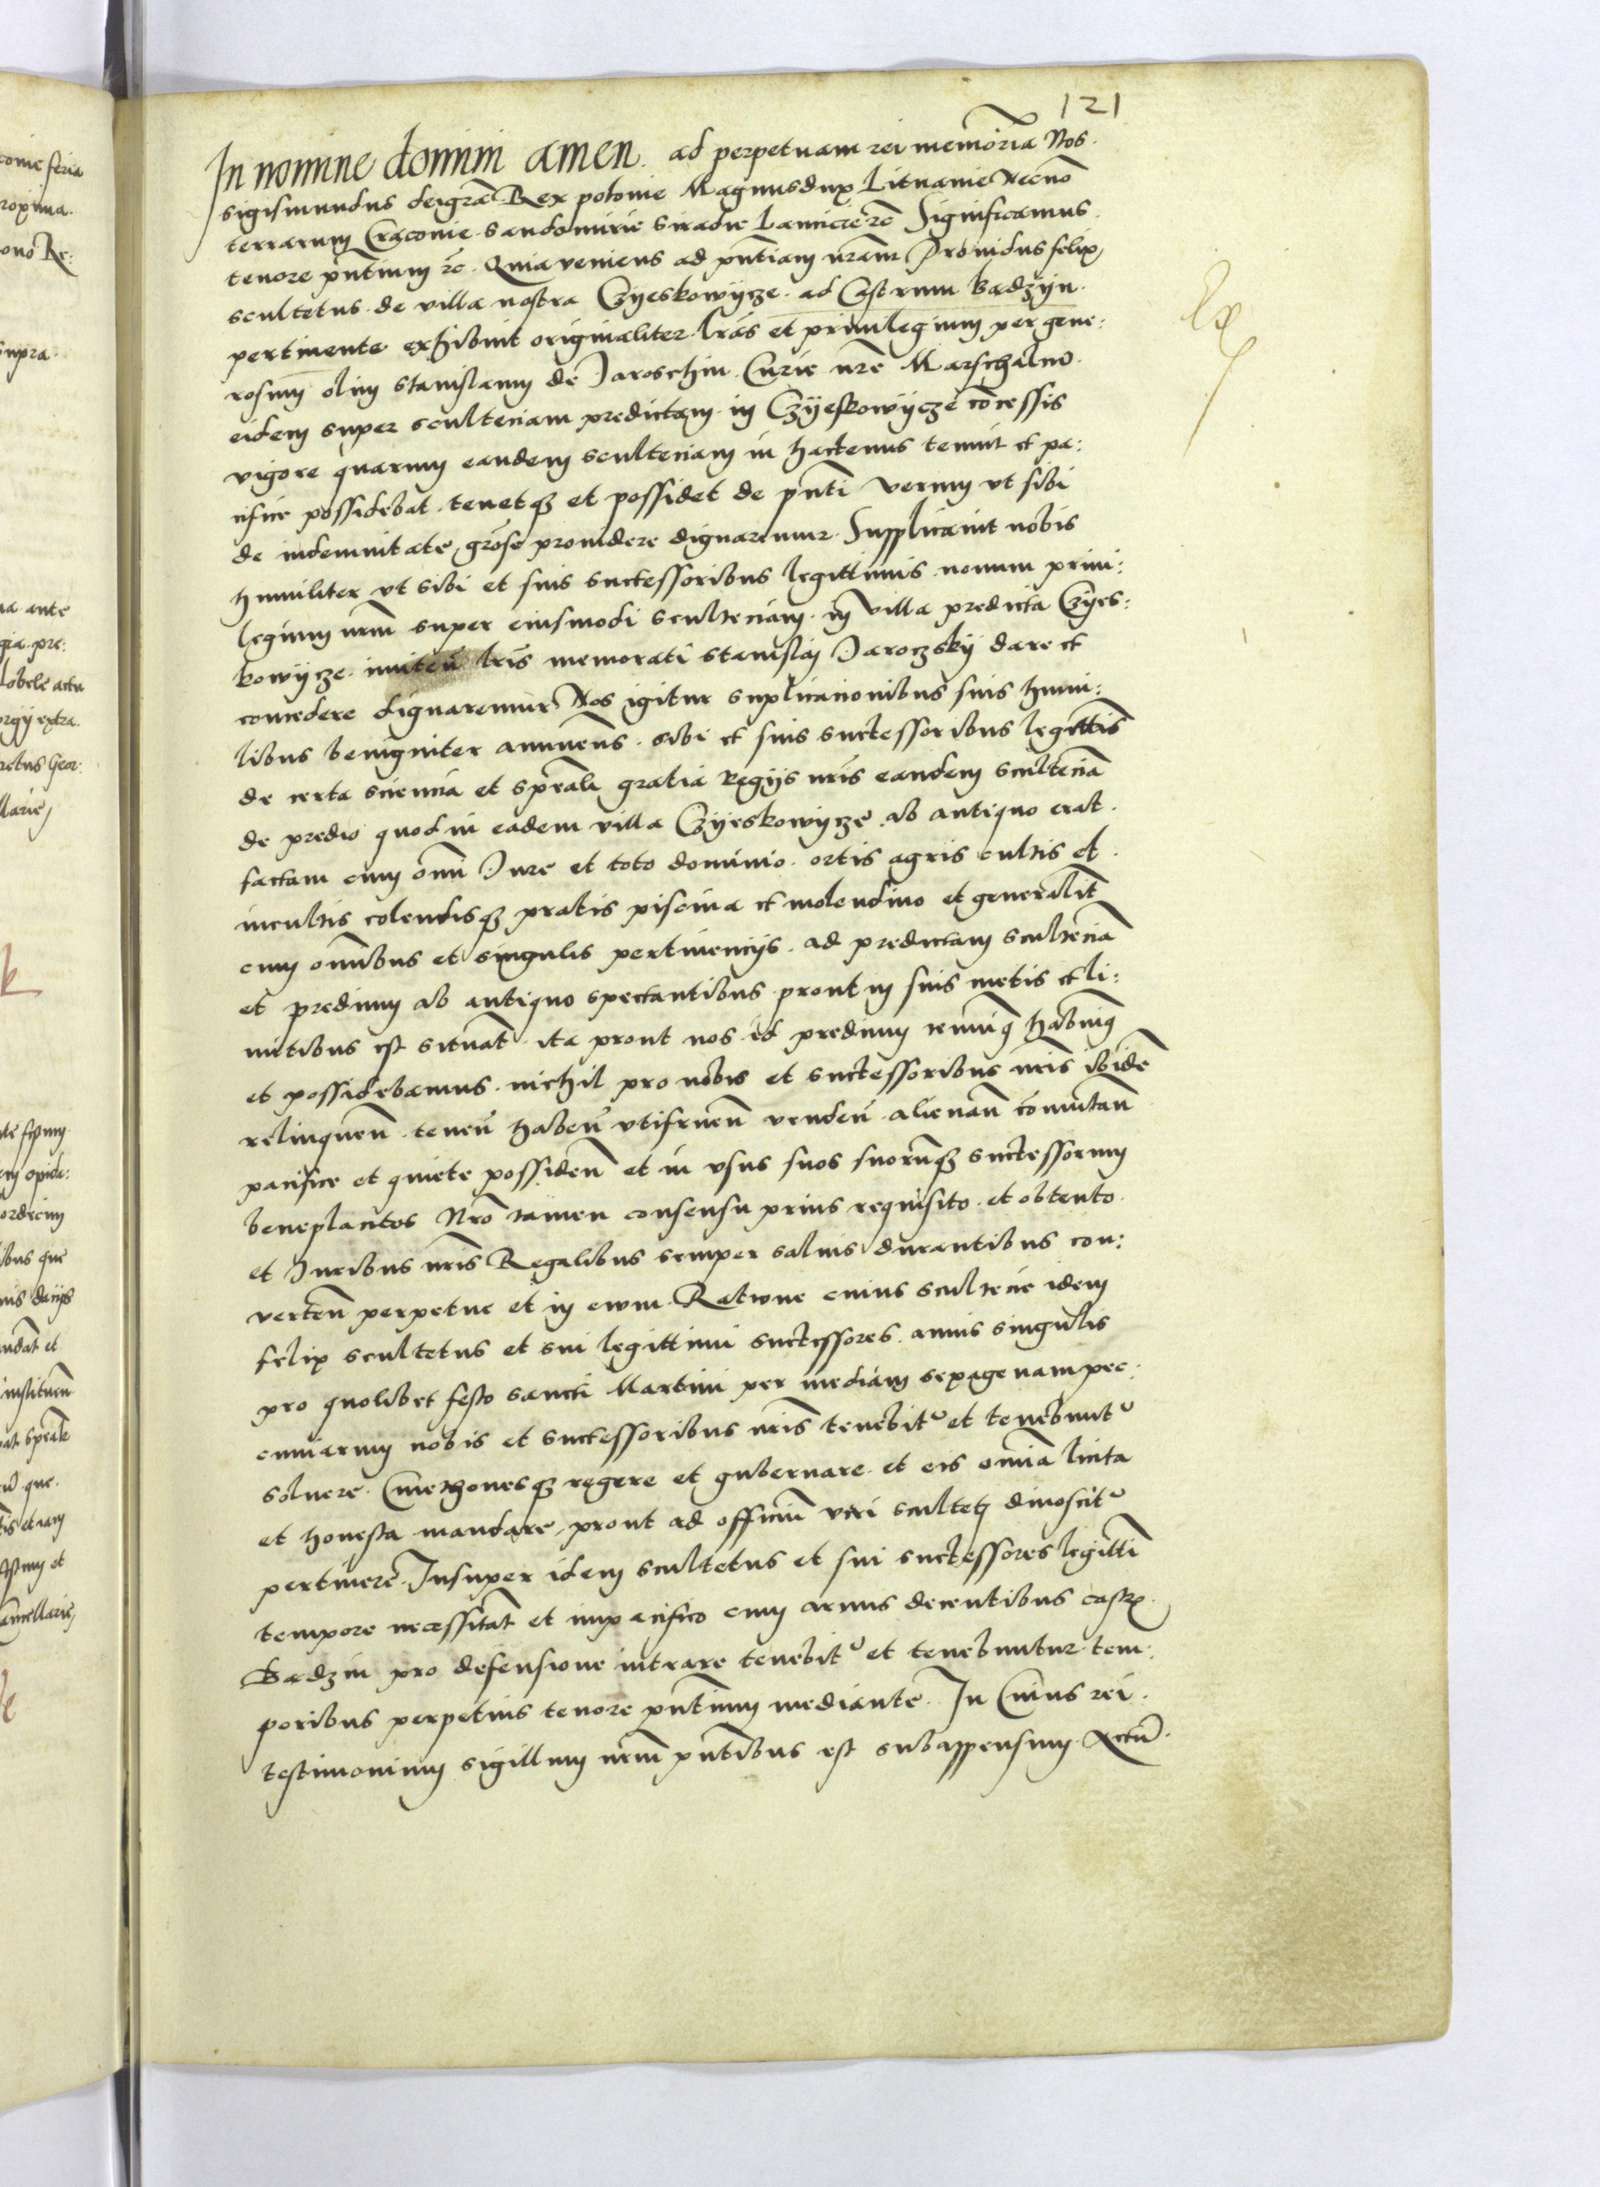 121
In nomine domini amen. ad perpetuam rei memoria Nos.
Sigismundus dei gra Rex polonie Magnus dux Lituanie Necno
terrarum Cracomie Sandomirie Siradie Lancicie zc Significamus
tenore pntium zc. Quia veniens ad pntiam nram Prouidus felix
scultetus de villa nostra Czyeskowycze. ad Castrum Badzyn.
pertinente exhibuit originaliter lras et priuilegium per gene:
rosum olim Stanislaum de Jaroschin Curie nre Marschalcu
eidem super sculteciam predictam in Czyeskowycze concessis
vigore quarum eandem scultetiam in hactenus tenuit et pa:
cifice possidebat tenetqz et possidet de pnti verum vt sibi
de indemnitate grose prouidere dignaremur. Supplicauit nobis
humiliter vt sibi et suis successoribus legittimis nouum priui:
legium nrm super eiusmodi scultetiam in villa predicta Czyes:
kowycze inniten lris memorati Stanislaj Jaroczsky dare et
concedere dignaremur Nos igitur suplicacionibus suis humi:
libus benigniter annuens. sibi et suis successoribus legittis
de certa sciencia et speali gratia Regijs nris eandem scultecia
de predio quod in eadem villa Czyeskowycze ab antiquo erat.
factam cum omi Jure et toto dominio. ortis agris cultis et.
incultis colendisqz pratis piscina et molendino et generalit
cum omibus et singulis pertinencijs. ad predictam scultecia
et predium ab antiquo spectantibus prout in suis metis et li:
mitibus est situat ita prout nos id predium tenuimq habuimq
et possidebamus. nichil pro nobis et successoribus nris ibide
relinquen. tenen haben vtifruen venden. alienan comutan
pacifice et quiete possiden et in vsus suos suorumqz successorum
beneplacitos Nro tamen consensu prius requisito et obtento.
et Juribus nris Regalibus semper saluis durantibus con:
verten perpetue et in ewm. Ratione cuius sculteciẹ idem
felix scultetus et sui legittimi successores. annis singulis
pro quolibet festo sancti Martini per mediam sexagenam pec:
cuniarum nobis et successoribus nris tenebit et tenebunt
soluere. Cmethonesqz regere et gubernare. et eis omia licita
et honesta mandare, prout ad officiu veri scultetj dinoscit
pertinere. Insuper idem scultetus et sui successores legitti
tempore necessitat et impacifico cum armis decentibus castr.
Badzin pro defensione intrare tenebit et tenebuntur tem:
poribus perpetuis tenore pntium mediante. In Cuius rei.
testimonium sigillum nrm pntibus est subappensum. Actu.